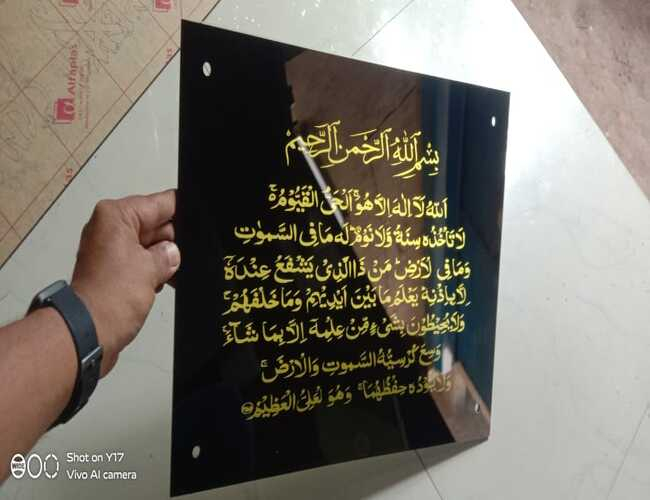 بِسْمِ اللهِ الرَّحْمٰنِ الرَّحِيْمِ
اَللهُ لَآ اِلٰهَ اِلَّا هُوَ ۚ اَلْحَيُّ الْقَيُّوْمُ ۚ
لَا تَاْخُذُهٗ سِنَةٌ وَّلَا نَوْمٌ ؕ لَهٗ مَا فِي السَّمٰوٰتِ
وَمَا فِي لْاَرْضِ ؕ مَنْ ذَا الَّذِيْ يَشْفَعُ عِنْدَهٗۤ
اِلَّا بِاِذْنِهٖ ؕ يَعْلَمُ مَا بَيْنَ اَيْدِيْهِمْ وَمَا خَلْفَهُمْ ۚ
وَلَا يُحِيْطُوْنَ بِشَيْءٍ مِّنْ عِلْمِهٖۤ اِلَّا بِمَا شَآءَ ۚ
وَسِعَ كُرْسِيُّهُ السَّمٰوٰتِ وَالْاَرْضَ ۚ
وَلَا يَـُٔوْدُهٗ حِفْظُهُمَا ۚ وَهُوَ لْعَلِيُّ الْعَظِيْمُ
Alfaplas
Shot on Y17
Vivo AI camera